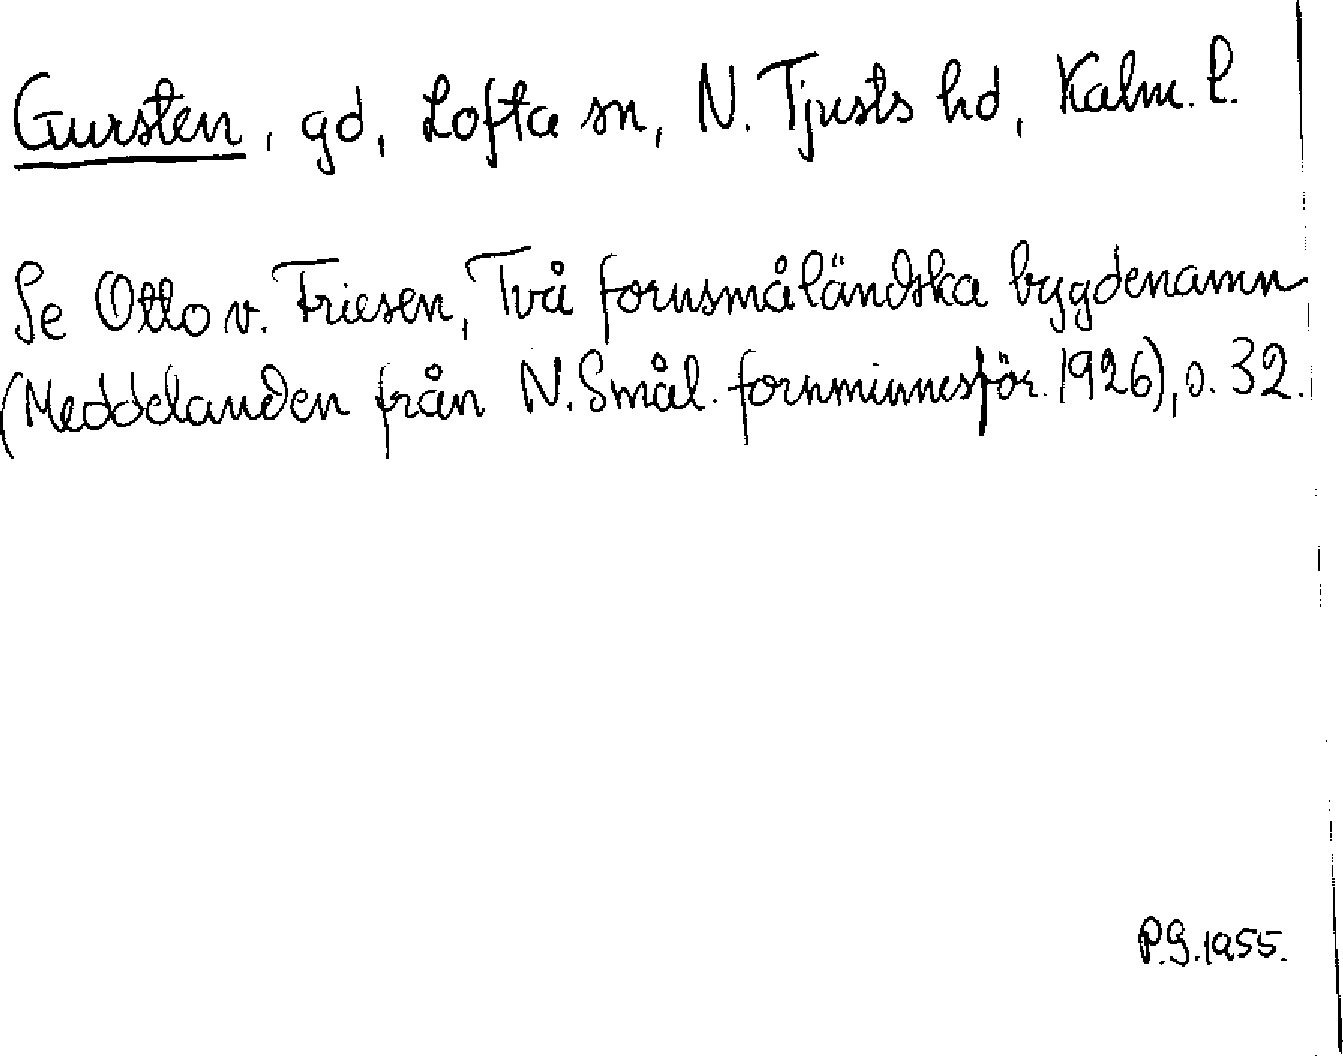 Gursten, gd, Lofta sn, N. Tjusts hd, Kalm. l.
Se Otto v. Friesen, Två fornsmåländska bygdenamn
(Meddelanden från N. Smål. fornminnesför. 1926), s. 32.
P.G. 1955.